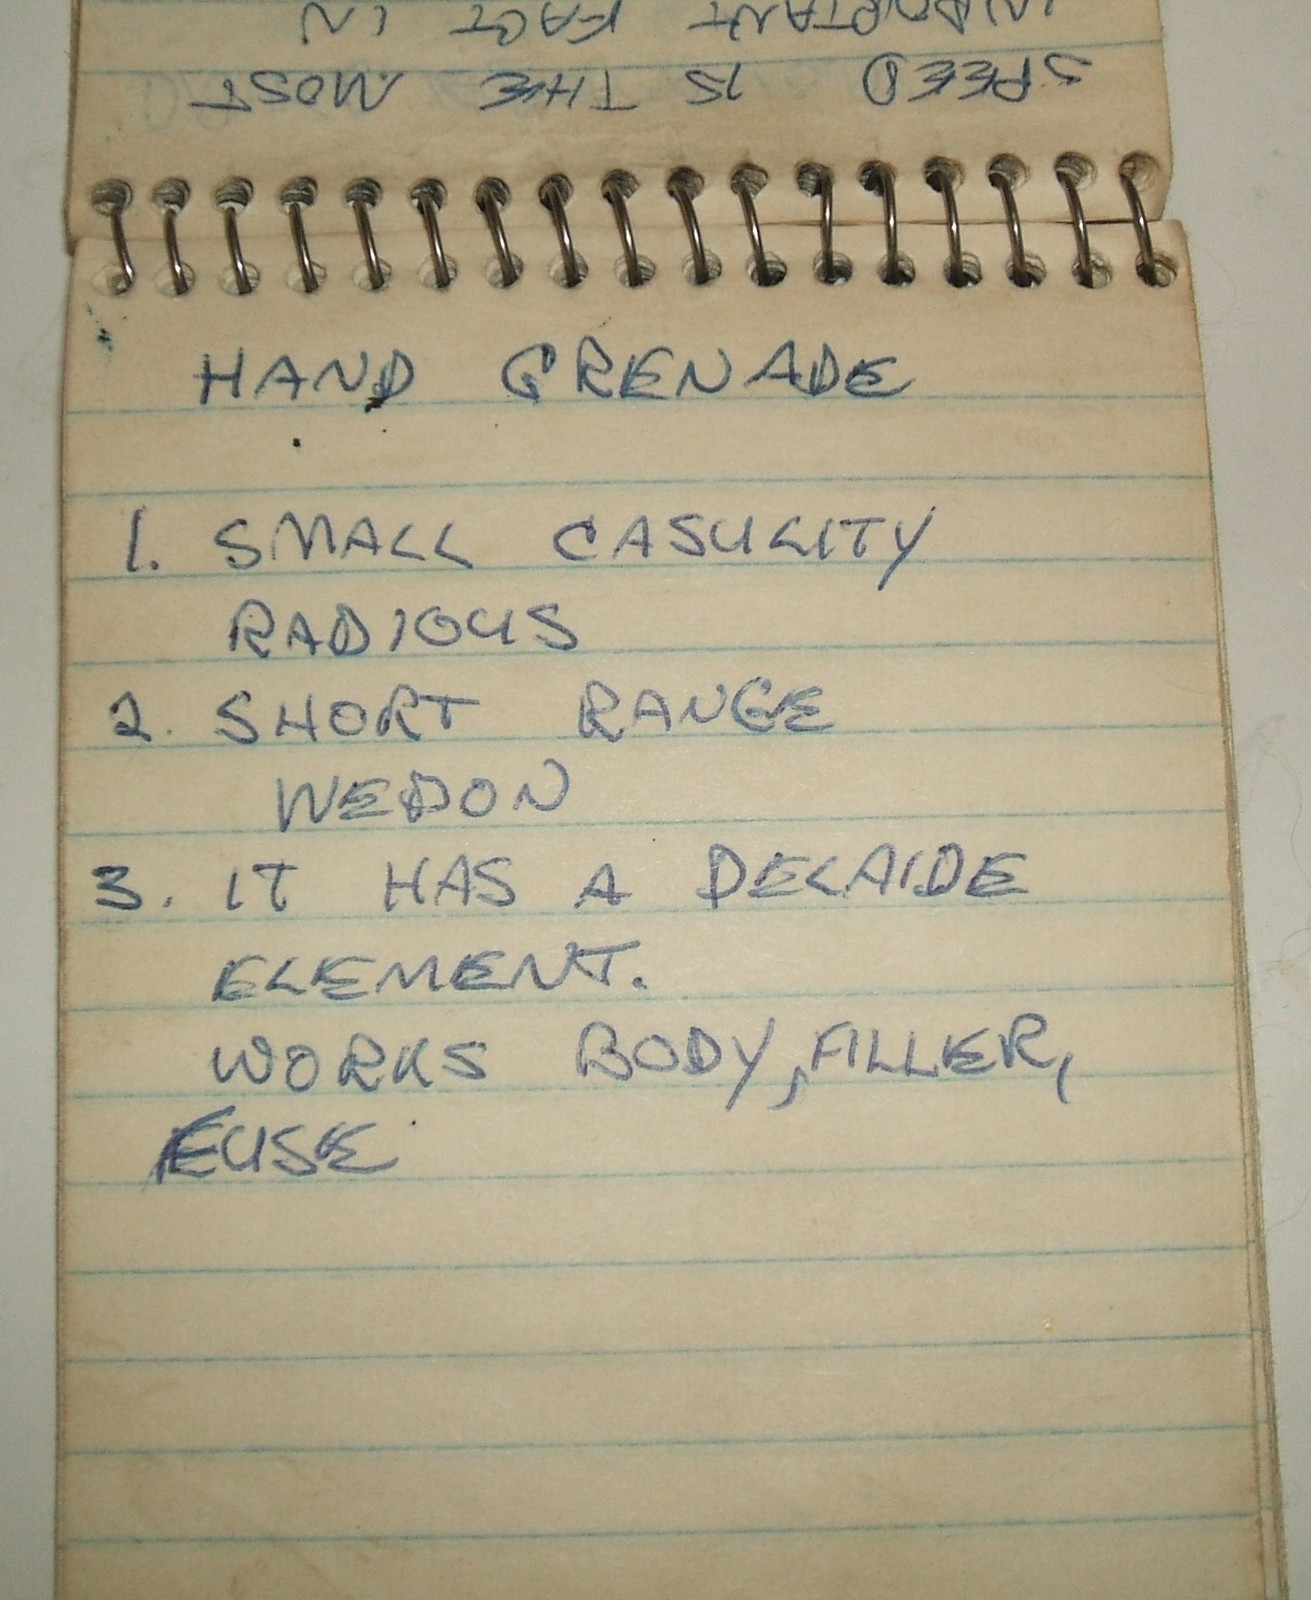 SPEED IS THE MOST
IMPORTANT FACT IN
HAND GRENADE
1. SMALL CASULITY
RADIOUS
2. SHORT RANGE
WEPON
3. IT HAS A DELAIDE
ELEMENT.
WORKS BODY, FILLER,
FUSE